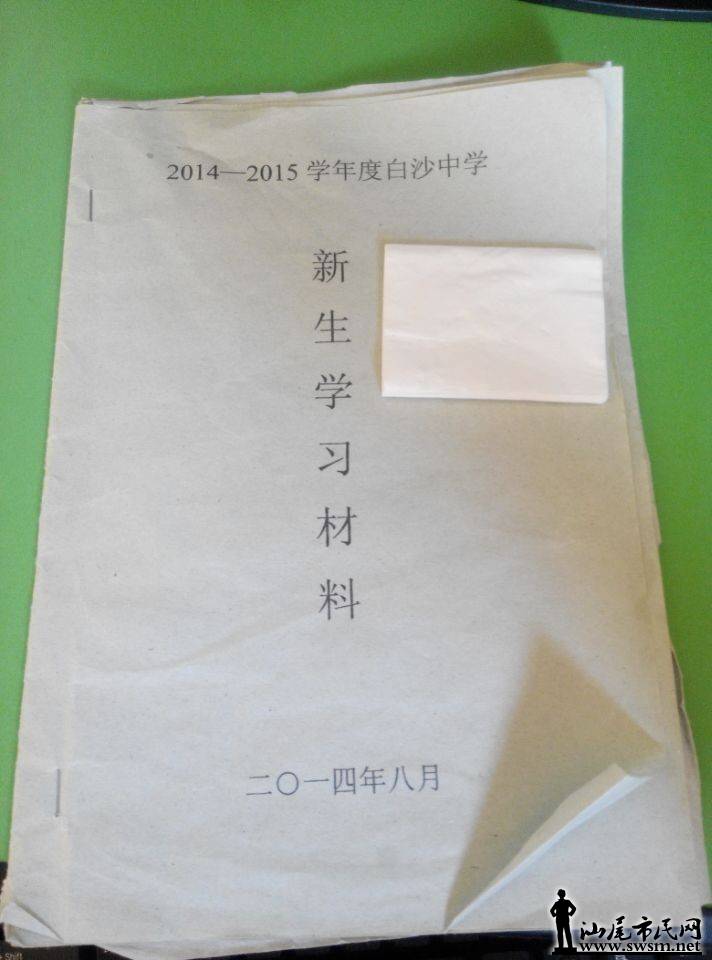 2014—2015 学年度白沙中学
新生学习材料
二〇一四年八月
汕尾市民网
www.swsm.net
Shift